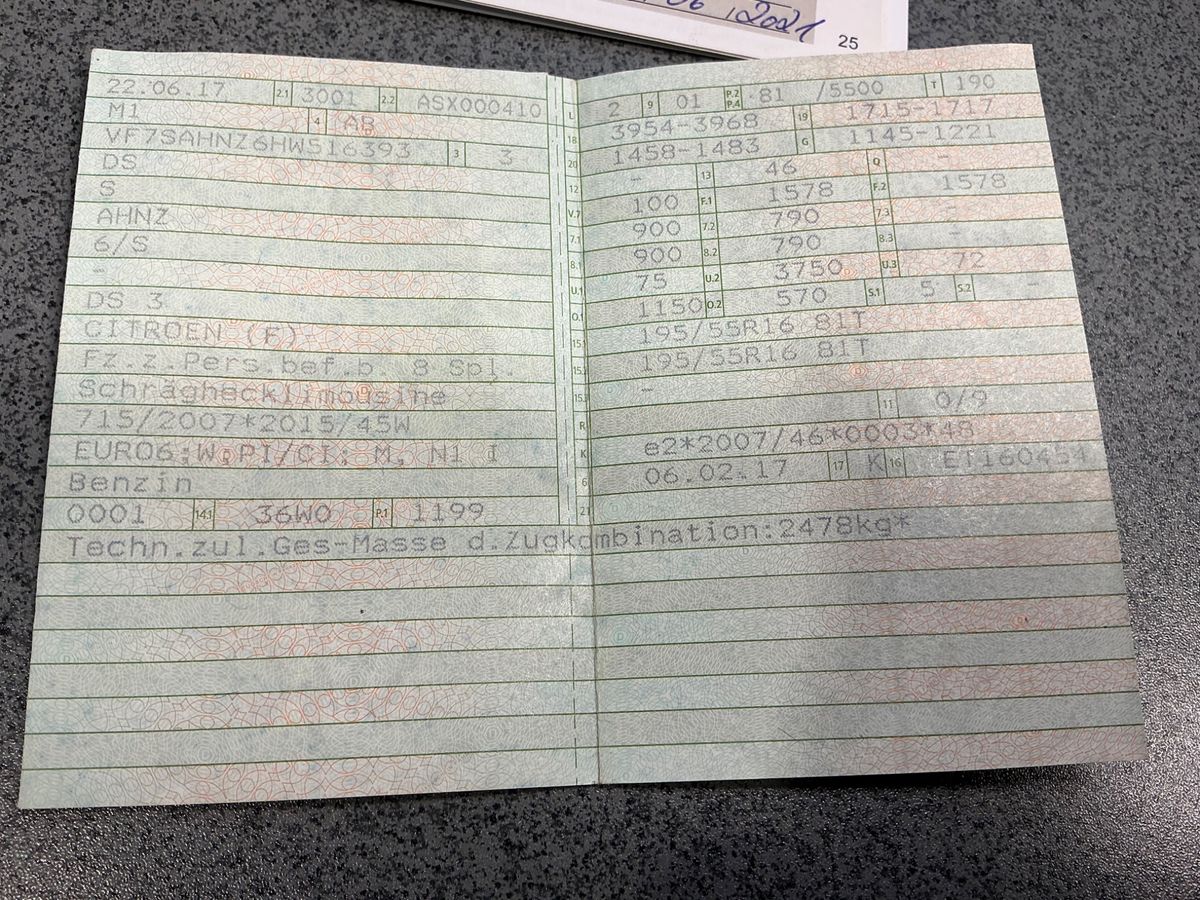 06 , 2021
25
22.06.17 2.1 3001 2.2 ASX000410
M1 4 AB
VF7SAHNZ6HW516393 3 3
DS
S
AHNZ
6/S
-
DS 3
CITROEN (F)
Fz.z.Pers.bef.b. 8 Spl.
Schräghecklimousine
715/2007*2015/45W
EURO6;W;PI/CI; M, N1 I
Benzin
0001 14.1 36W0 P.1 1199
Techn.zul.Ges-Masse d.Zugkombination:2478kg*
L 2 9 01 P.2 P.4 81 /5500 T 190
18 3954-3968 19 1715-1717
20 1458-1483 G 1145-1221
12 - 13 46 Q -
V.7 100 F.1 1578 F.2 1578
7.1 900 7.2 790 7.3 -
8.1 900 8.2 790 8.3 -
U.1 75 U.2 3750 U.3 72
O.1 1150 O.2 570 S.1 5 S.2 -
15.1 195/55R16 81T
15.2 195/55R16 81T
15.3 -
R 11 0/9
K e2*2007/46*0003*48
6 06.02.17 17 K 16 ET160454
21